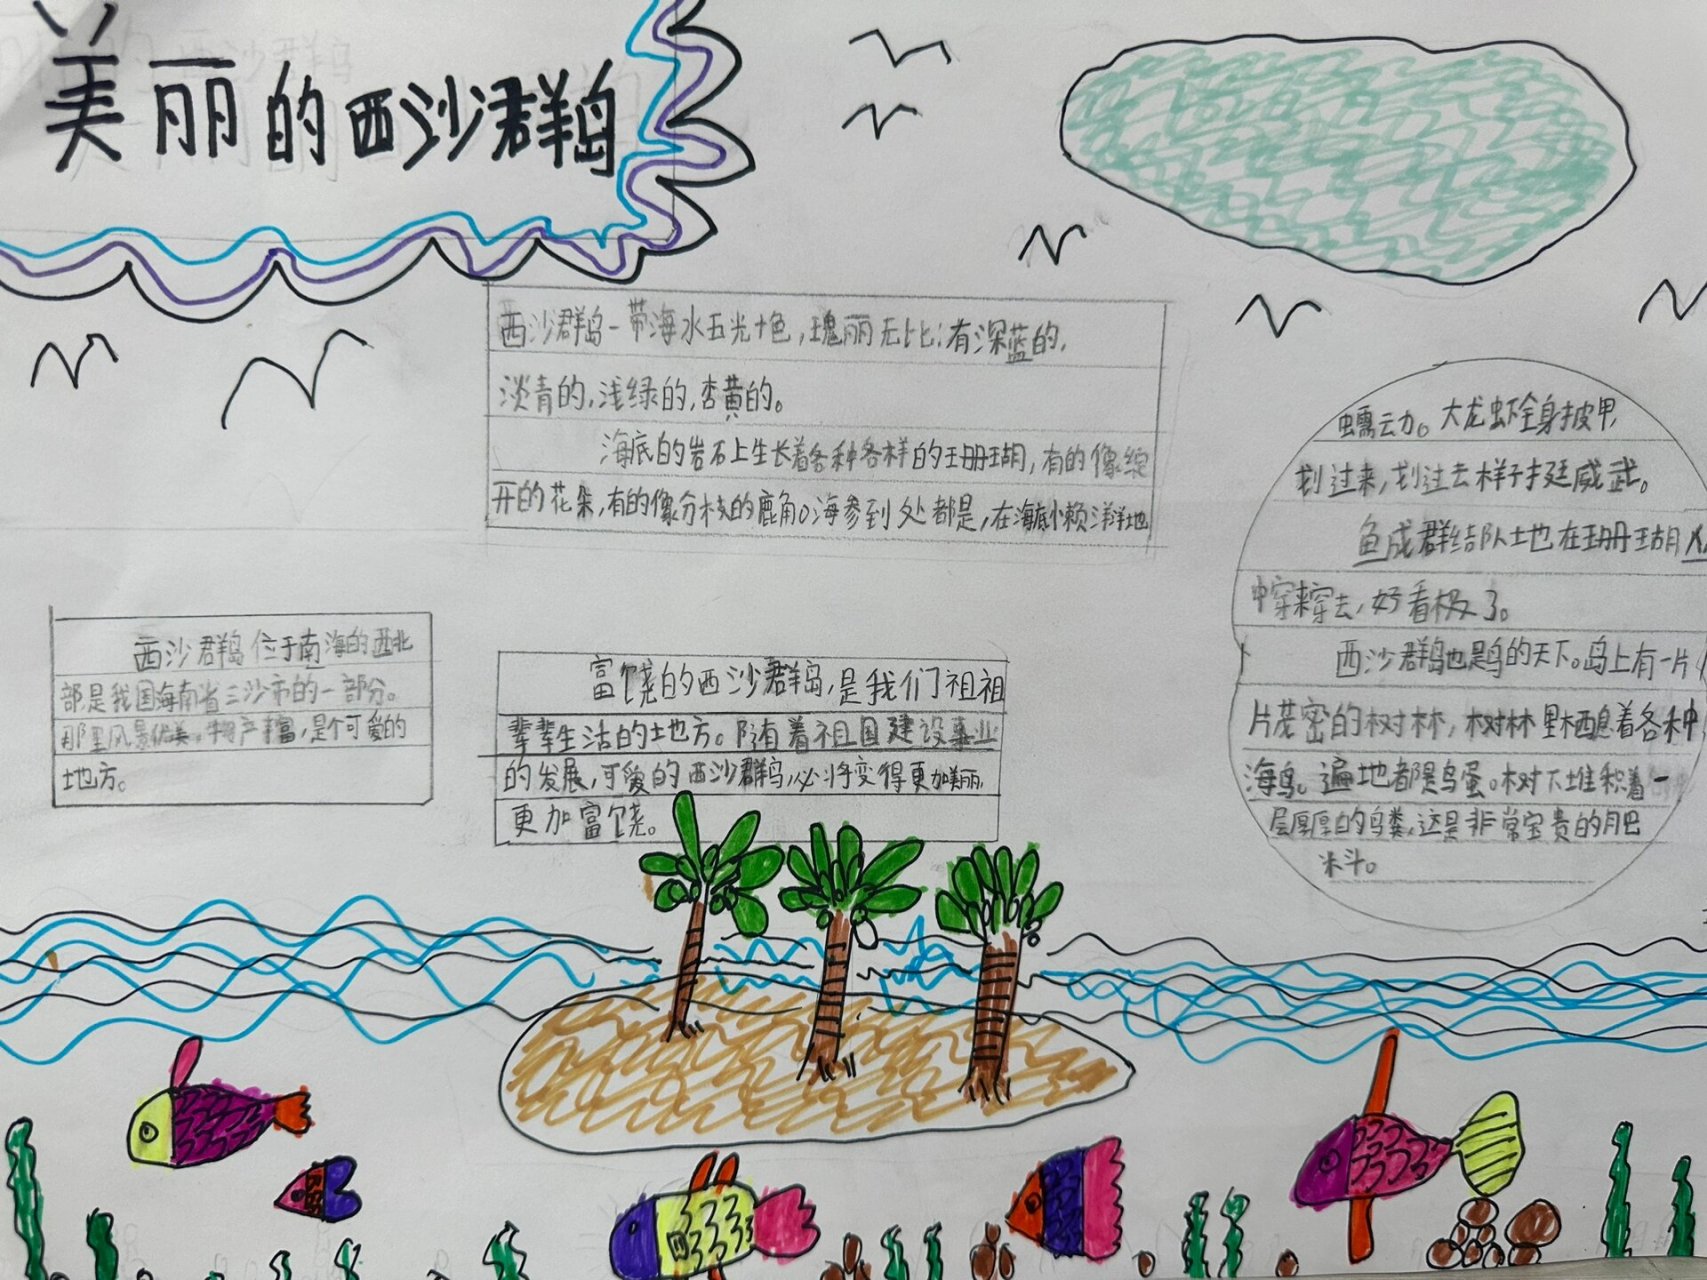 美丽的西沙群岛
西沙群岛一带海水五光十色，瑰丽无比：有深蓝的，
淡青的，浅绿的，杏黄的。
海底的岩石上生长着各种各样的珊瑚，有的像绽
开的花朵，有的像分枝的鹿角。海参到处都是，在海底懒洋洋地
蠕动。大龙虾全身披甲，
划过来，划过去样子挺威武。
鱼成群结队地在珊瑚
中穿来穿去，好看极了。
西沙群岛也是鸟的天下。岛上有一片
片茂密的树林，树林里栖息着各种
海鸟。遍地都是鸟蛋。树下堆积着一
层厚厚的鸟粪，这是非常宝贵的肥
料。
西沙群岛位于南海的西北
部是我国海南省三沙市的一部分。
那里风景优美，物产丰富，是个可爱的
地方。
富饶的西沙群岛，是我们祖祖
辈辈生活的土地方。随着祖国建设事业
的发展，可爱的西沙群岛，必将变得更加美丽，
更加富饶。